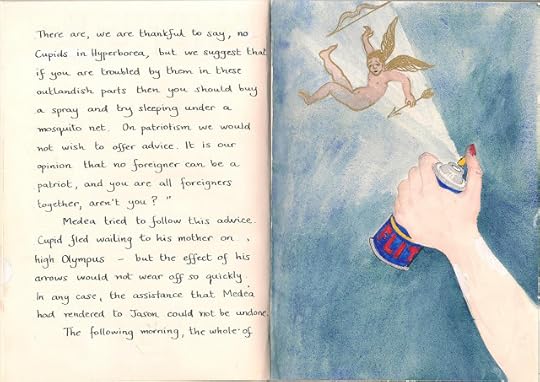 There are, we are thankful to say, no
Cupids in Hyperborea, but we suggest that
if you are troubled by them in these
outlandish parts then you should buy
a spray and try sleeping under a
mosquito net. On patriotism we would
not wish to offer advice. It is our
opinion that no foreigner can be a
patriot, and you are all foreigners
together, aren't you? "
Medea tried to follow this advice.
Cupid fled wailing to his mother on
high Olympus - but the effect of his
arrows would not wear off so quickly.
In any case, the assistance that Medea
had rendered to Jason could not be undone.
The following morning, the whole of
FLIT